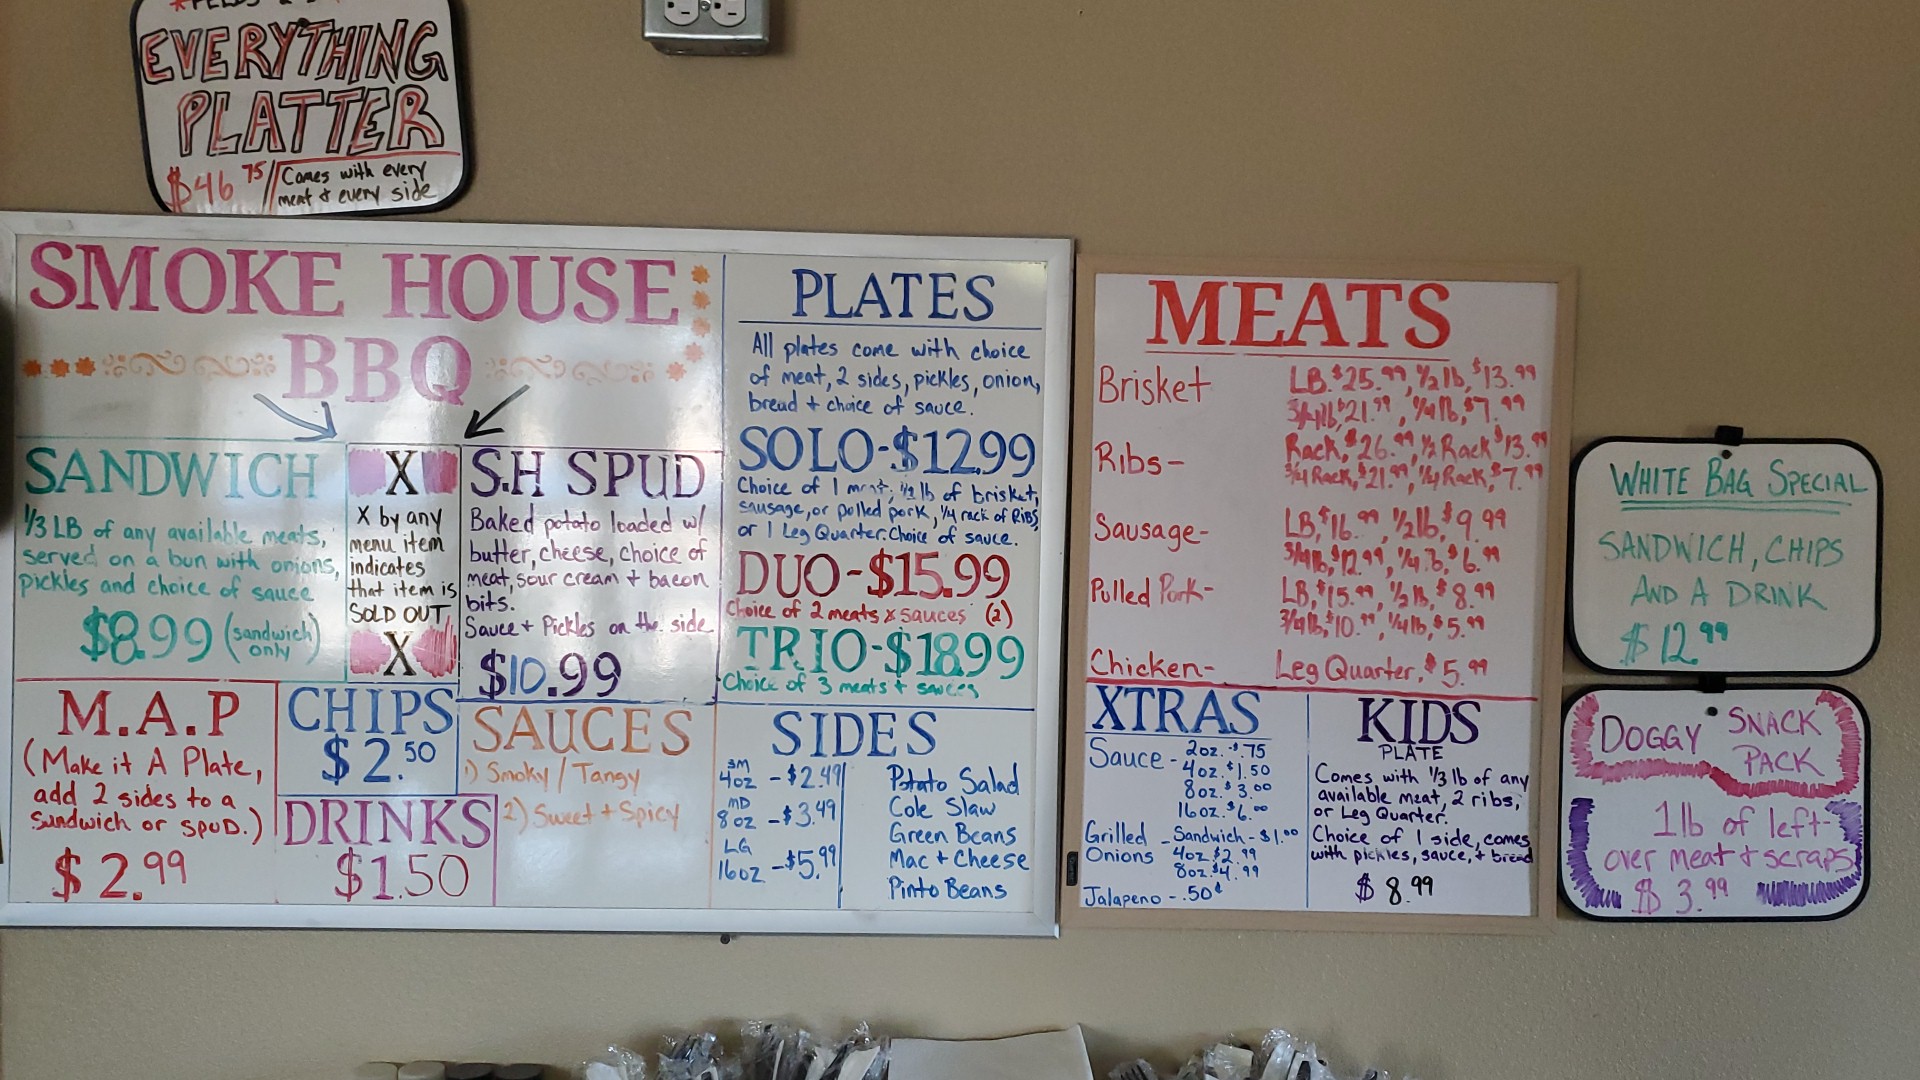 EVERYTHING
PLATTER
$46.75 / Comes with every
meat & every side
SMOKE HOUSE
BBQ
SANDWICH
1/3 LB of any available meats,
served on a bun with onions,
pickles and choice of sauce
$8.99 (sandwich
only)
X
X by any
menu item
indicates
that item is
SOLD OUT
X
S.H SPUD
Baked potato loaded w/
butter, cheese, choice of
meat, sour cream + bacon
bits.
Sauce + Pickles on the side
$10.99
M.A.P
(Make it A Plate,
add 2 sides to a
sandwich or spuD.)
$2.99
CHIPS
$2.50
DRINKS
$1.50
SAUCES
1) Smoky / Tangy
2) Sweet + Spicy
PLATES
All plates come with choice
of meat, 2 sides, pickles, onion,
bread + choice of sauce.
SOLO-$12.99
Choice of 1 meat, 1/2 lb of brisket,
sausage, or pulled pork, 1/4 rack of Ribs,
or 1 Leg Quarter. Choice of sauce.
DUO-$15.99
Choice of 2 meats & sauces (2)
TRIO-$18.99
Choice of 3 meats + sauces
SIDES
SM
4oz - $2.49
MD
8oz - $3.49
LG
16oz - $5.99
Potato Salad
Cole Slaw
Green Beans
Mac + Cheese
Pinto Beans
MEATS
Brisket LB. $25.99, 1/2 lb, $13.99
3/4 lb, $21.99, 1/4 lb, $7.99
Ribs- Rack, $26.99, 1/2 Rack $13.99
3/4 Rack, $21.99, 1/4 Rack, $7.99
Sausage- LB, $16.99, 1/2 lb, $9.99
3/4 lb, $12.99, 1/4 lb, $6.99
Pulled Pork- LB, $15.99, 1/2 lb, $8.99
3/4 lb, $10.99, 1/4 lb, $5.99
Chicken- Leg Quarter, $5.99
XTRAS
Sauce - 2oz. - $.75
4oz. $1.50
8oz. $3.00
16oz. $6.00
Grilled Onions - Sandwich - $1.00
4oz $2.99
8oz. $4.99
Jalapeno - .50¢
KIDS
PLATE
Comes with 1/3 lb of any
available meat, 2 ribs,
or Leg Quarter.
Choice of 1 side, comes
with pickles, sauce, + bread
$8.99
WHITE BAG SPECIAL
SANDWICH, CHIPS
AND A DRINK
$12.99
DOGGY SNACK
PACK
1lb of left-
over meat + scraps
$3.99